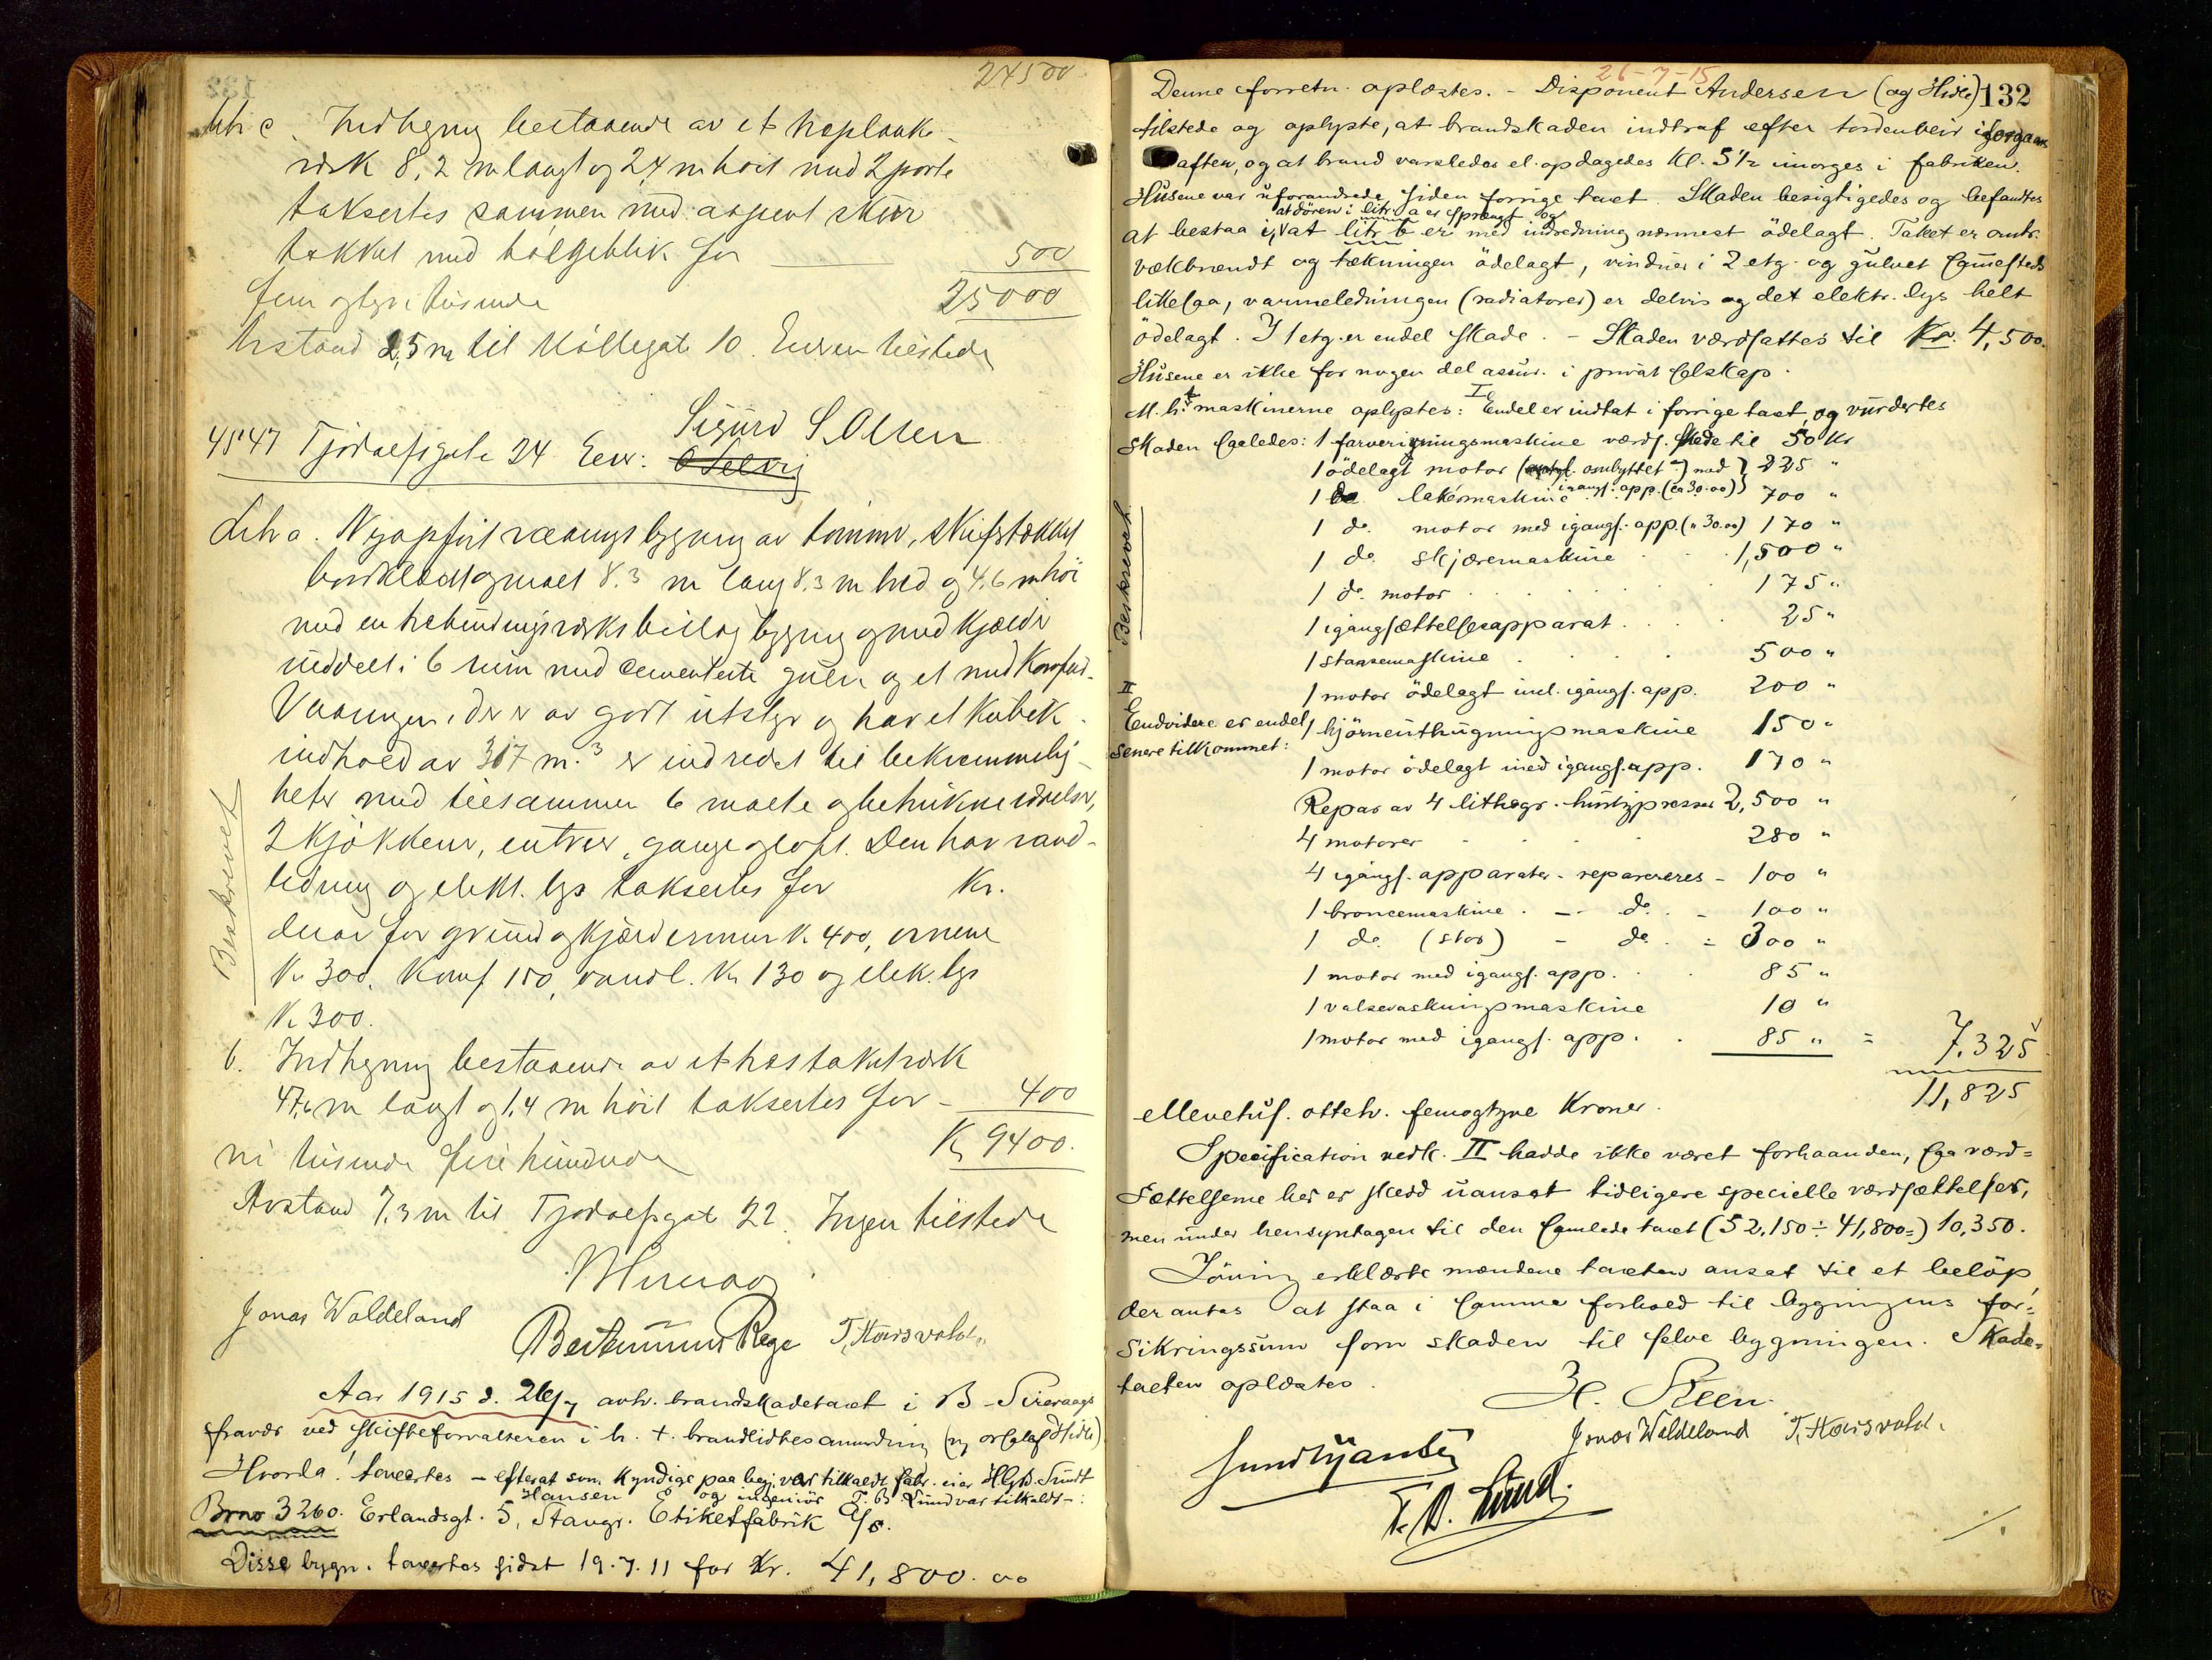 24500
Litr c. Indhegning bestaaende av et træplanke-
værk 8,2 m langt og 2,4 m höit med 2 porte
taksertes sammen med aapent skur
tækket med bölgeblik for 500
fem og tyve tusende 25000
Avstand 2,5 m til Möllegate 10. Eieren tilstede
Sigurd S. Olsen
4547 Tjodolfsgate 24 Eier: O Selvig
Litr a. Nyopført vaanings bygning av tømmer, skifertækket
bordklædt og malt 8.3 m lang 8.3 m bred og 4,6 m höi
med en træbindingsværks tillægbygning og med kjælder
inddelt i 6 rum med cementerte gulve og et med komfur.
Vaaningen, der er av godt utstyr og har et kubik-
indhold av 317 m.3 er indredet til bekvemmelig-
heter med tilsammen 6 malte og betrukne værelser,
2 kjøkkener, entreer, gange og loft. Den har vand-
ledning og elekt. lys taksertes for Kr.
derav for grund og kjældermur Kr 400, ovnene
Kr 300, Komf 150, vandl. Kr 130 og elek. lys
Kr 300.
Beskrevet
b. Indhegning bestaaende av et træstaketværk
47,6 m langt og 1,4 m höit taksertes for - 400
Kr 9400.
ni tusende fire hundrede
Avstand 7,3 m til Tjodolfsgate 22. Ingen tilstede
Jonas Waldeland Bertinius Rege T. Horsvold
Aar 1915 d. 26/7 avh. brandskadetaxt i B. Sirevaags
fravær ved skifteforvalteren i h. t. brandlidtes anmodning
Hvorda! taxertes - efterat som kyndige paa begj. var tilkaldt fabr. eier H. Gr. Sundt
Hansen og ingeniör T. B. Lund var tilkaldt -:
Brno 3260. Erlandsgt. 5, Stavgr. Etiketfabrik A/S.
Disse bygn. taxertes sidst 19.7.11 for Kr. 41,800.00
26-7-15
132
Denne forretn. oplæstes. - Disponent Andersen (og Hidle)
tilstede og oplyste, at brandskaden indtraf efter tordenveir igaar
aften, og at brand varsledes el. opdagedes Kl. 5½ imorges i fabriken.
Husene var uforandrede siden forrige taxt. Skaden besigtigedes og befandtes
at dören i litr. a er sprængt og
at bestaa i, at litr b er med indredning nærmest ödelagt. Taket er omtr.
vækbrændt og tækningen ödelagt, vinduer i 2 etg. og gulvet sammesteds
likesaa, varmeledningen (radiatorer) er delvis og det elektr. lys helt
ödelagt. I 1 etg. er endel skade. - Skaden værdsattes til Kr. 4,500.
Husene er ikke for nogen del assur. i privat selskap.
I
M. h. t. maskinerne oplystes: Endel er indtat i forrige taxt, og vurdertes
skaden saaledes: 1 farverivningsmaskine værds. skade til 50 Kr
1 ödelagt motor (ombyttet) med 225 "
igangs. app. (ca 30.00)
1 do. lakermaskine 700 "
1 do. motor med igangs. app. (" 30.00) 170 "
1 do. skjæremaskine 1,500 "
1 do. motor 175 "
1 igangsættelsesapparat 25 "
1 stansemaskine 500 "
1 motor ödelagt incl. igangs. app. 200 "
Beskrevet
II
Endvidere er endel
senere tilkommet:
1 hjörneuthugningsmaskine 150 "
1 motor ödelagt med igangs. app. 170 "
Repar av 4 lithogr. hurtigpresser 2,500 "
4 motorer 280 "
4 igangs. apparater - repareres - 100 "
1 broncemaskine - do. - 100 "
1 do. (stor) - do. = 300 "
1 motor med igangs. app. 85 "
1 valsevaskningsmaskine 10 "
1 motor med igangs. app. 85 " = 7.325
11,825
ellevetus. otteh. femogtyve Kroner.
Specification vedk. II hadde ikke været forhaanden, saa værd=
sættelserne her er skedd uanset tidligere specielle værdsættelser,
men under hensyntagen til den samlede taxt (52,150 ÷ 41,800=) 10,350.
Iövrig erklærte mændene taxten ansat til et belöp,
der antas at staa i samme forhold til bygningens for=
sikringssum som skaden til selve bygningen. Skade=
taxten oplæstes.
H. Steen.
Jonas Waldeland T. Horsvold.
T. B. Lund.